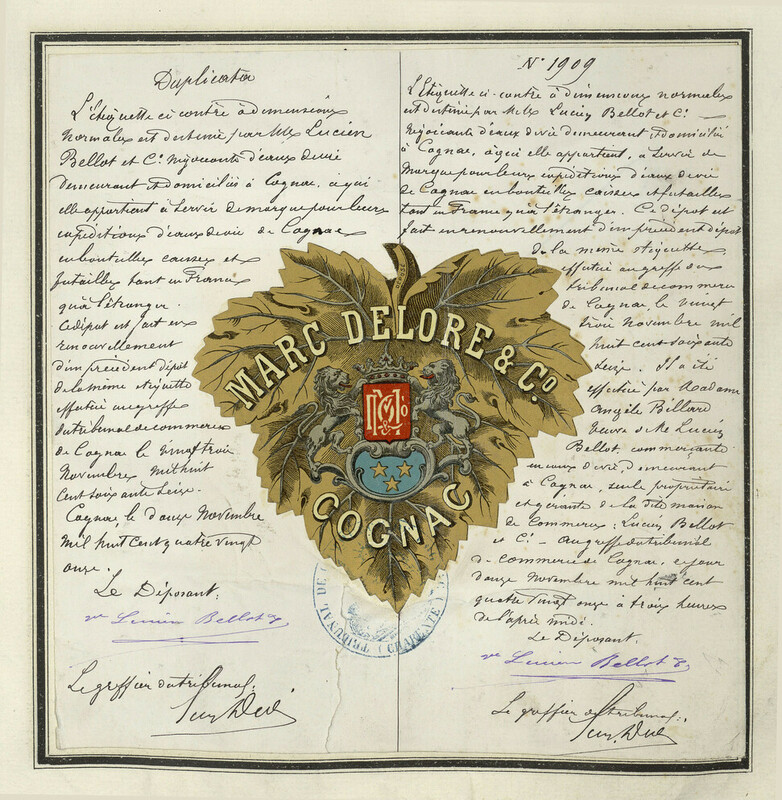 Duplicata
L'étiquette ci contre à dimensions
normales est destiné par Mrs Lucien
Bellot et Cie négociants d'eaux de vie
demeurant et domiciliés à Cognac, à qui
elle appartient à servir de marque pour leurs
expéditions d'eaux de vie de Cognac
en bouteilles caisses et
futailles tant en France
qu'à l'étranger.
Ce dépôt est fait en
renouvellement
d'un précédent dépôt
de la même étiquette
effectué au greffe
du tribunal de commerce
de Cognac le vingt trois
Novembre mil huit
Cent soixante seize.
Cognac, le douze Novembre
mil huit cent quatre vingt
onze.
Le Déposant:
Vve Lucien Bellot &
Le greffier du tribunal:
No 1909
L'étiquette ci-contre à dimensions normales
est destiné par Mrs Lucien Bellot et Cie
négociants d'eaux de vie demeurant et domiciliés
à Cognac, à qui elle appartient, à servir de
marque pour leurs expéditions d'eaux de vie
de Cognac en bouteilles caisses et futailles
tant en France qu'à l'étranger. Ce dépôt est
fait en renouvellement d'un précédent dépôt
de la même étiquette
effectué au greffe du
tribunal de commerce
de Cognac le vingt
trois Novembre mil
huit cent soixante
seize. Il a été
effectué par Madame
Angèle Billard
veuve de Mr Lucien
Bellot, commerçante
en eaux de vie, demeurant
à Cognac, seule propriétaire
et gérante de la dite maison
de Commerce: Lucien Bellot
et Cie - au greffe du tribunal
de commerce de Cognac, ce jour
douze Novembre mil huit cent
quatre vingt onze à trois heures
de l'après midi.
Le Déposant.
Vve Lucien Bellot &
Le greffier du tribunal:
MARC DELORE & Co
COGNAC
TRIBUNAL DE
(CHARENTE)